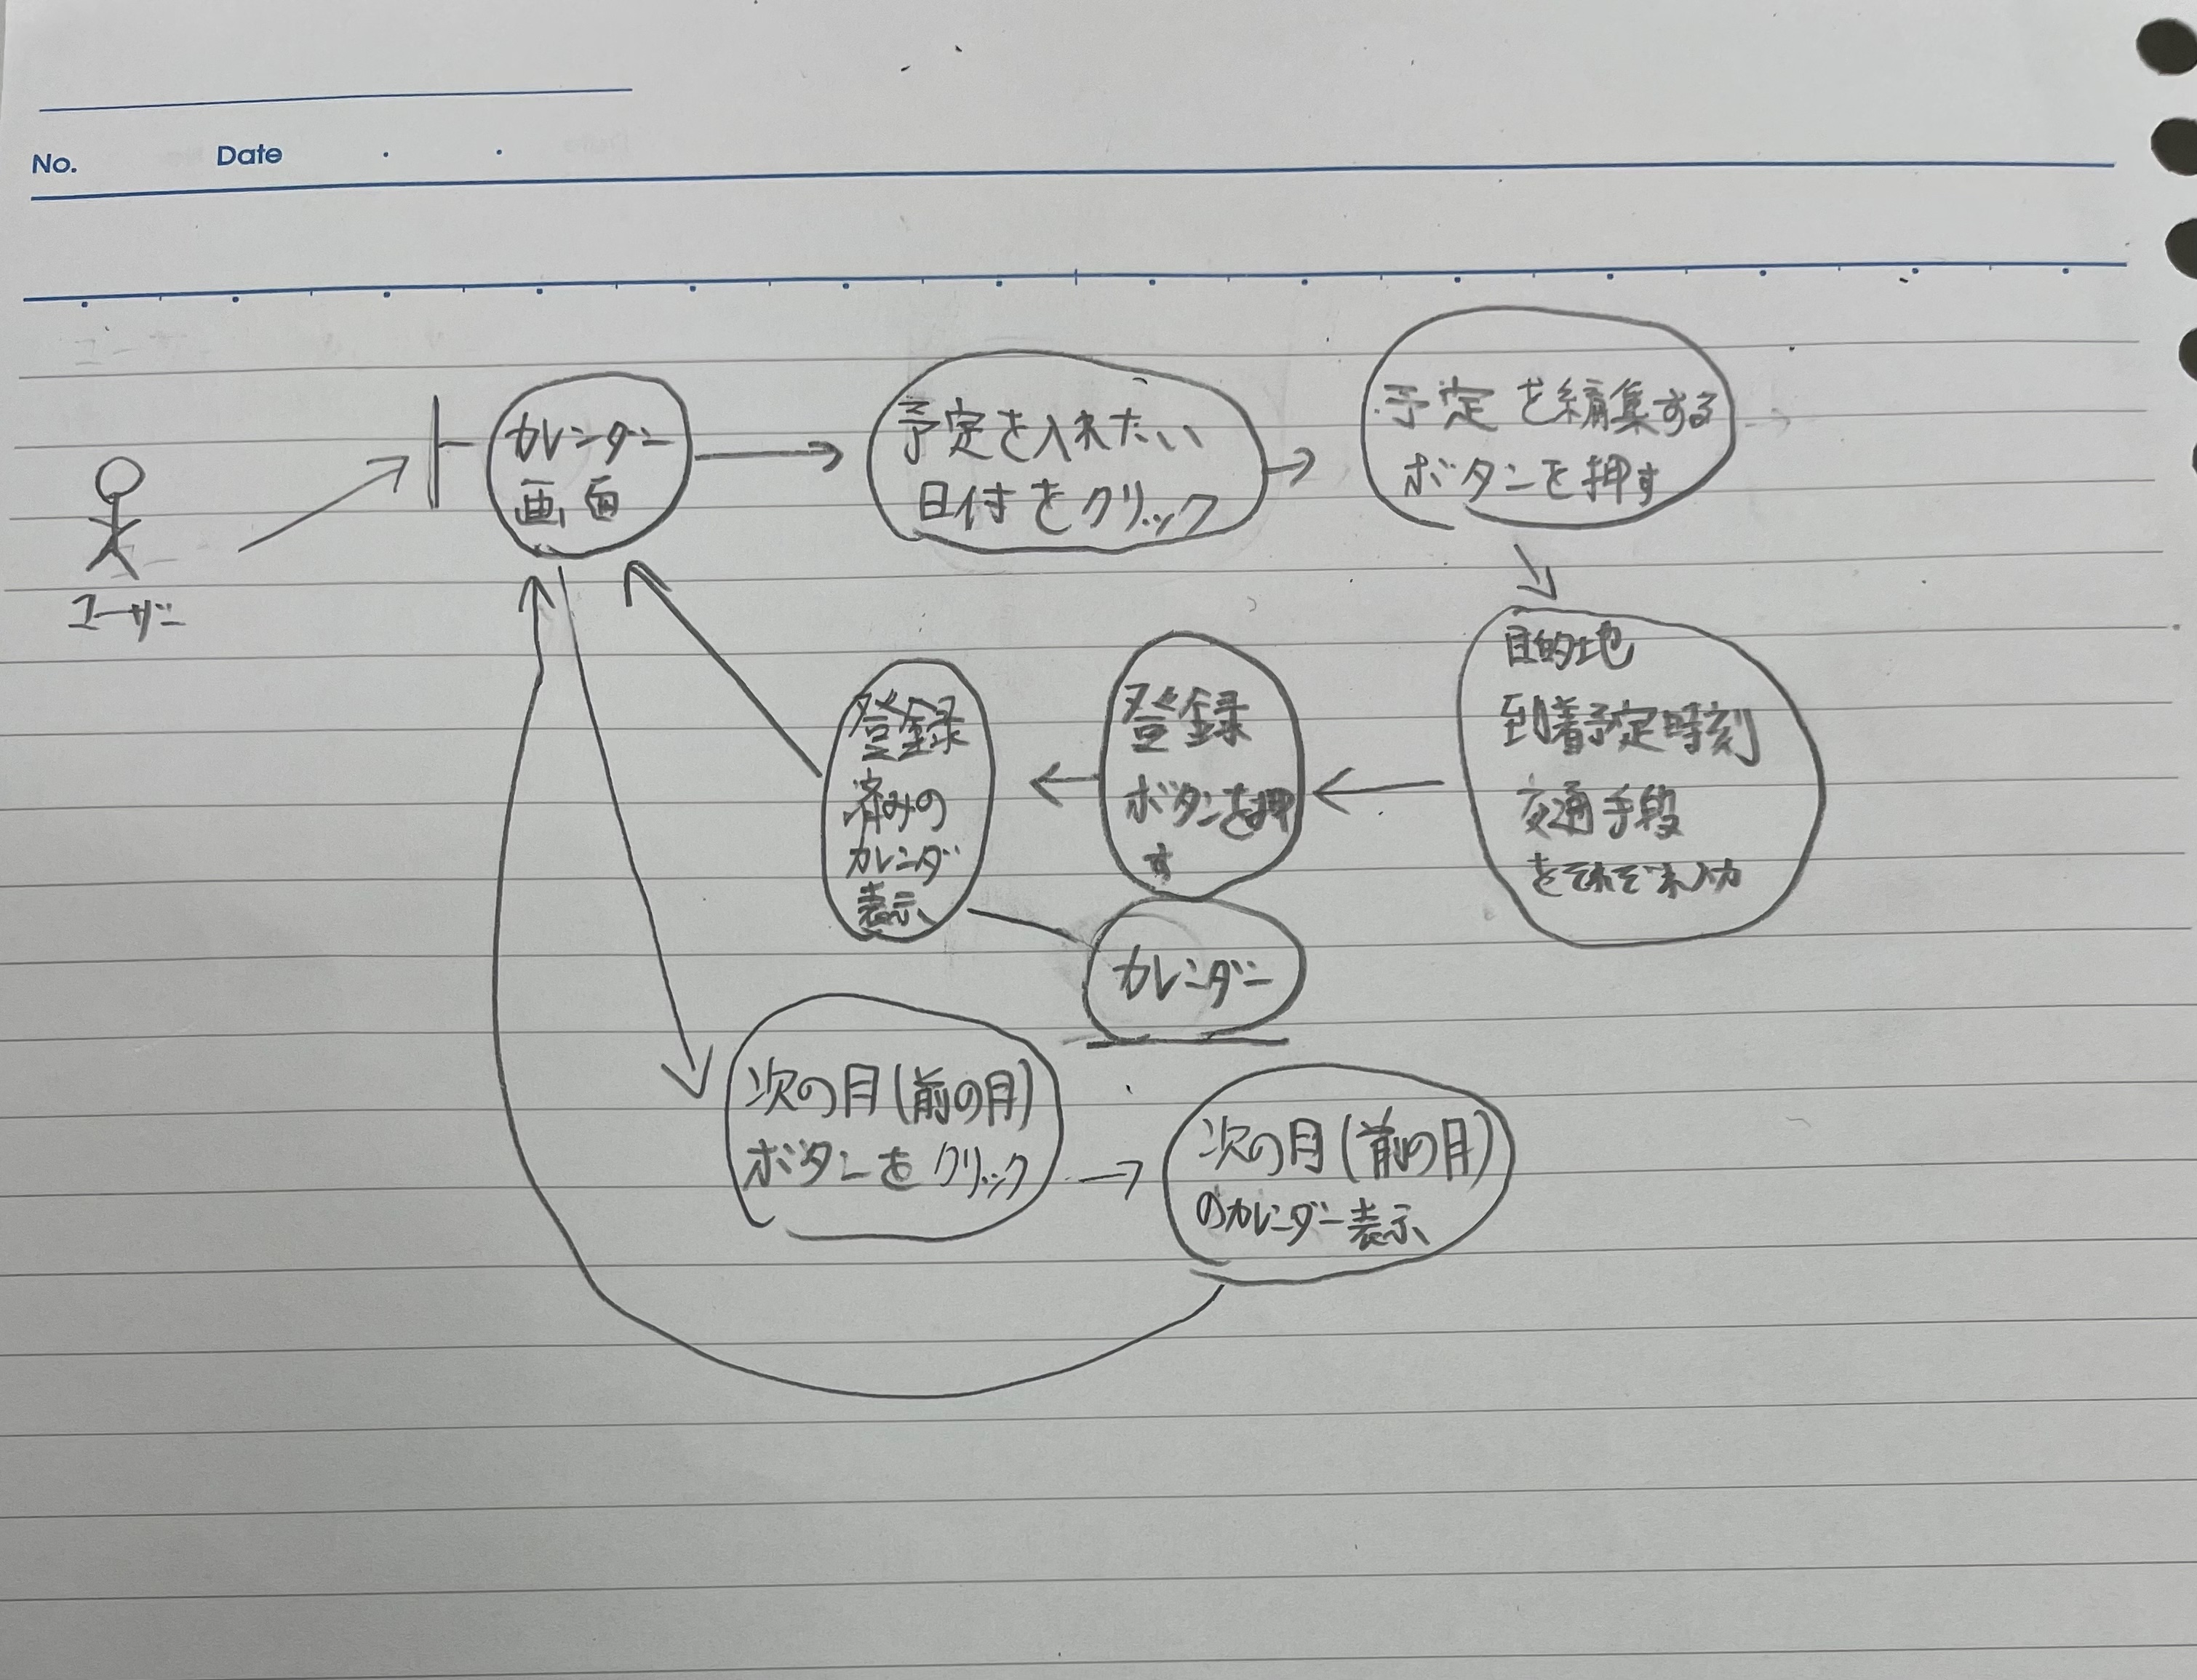 No. Date
カレンダー
画面
予定を入れたい
日付をクリック
予定を編集する
ボタンを押す
ユーザー
目的地
到着予定時刻
交通手段
をそれぞれ入力
登録
ボタンを押
す
登録
済みの
カレンダ
表示
カレンダー
次の月(前の月)
ボタンをクリック
次の月(前の月)
のカレンダー表示